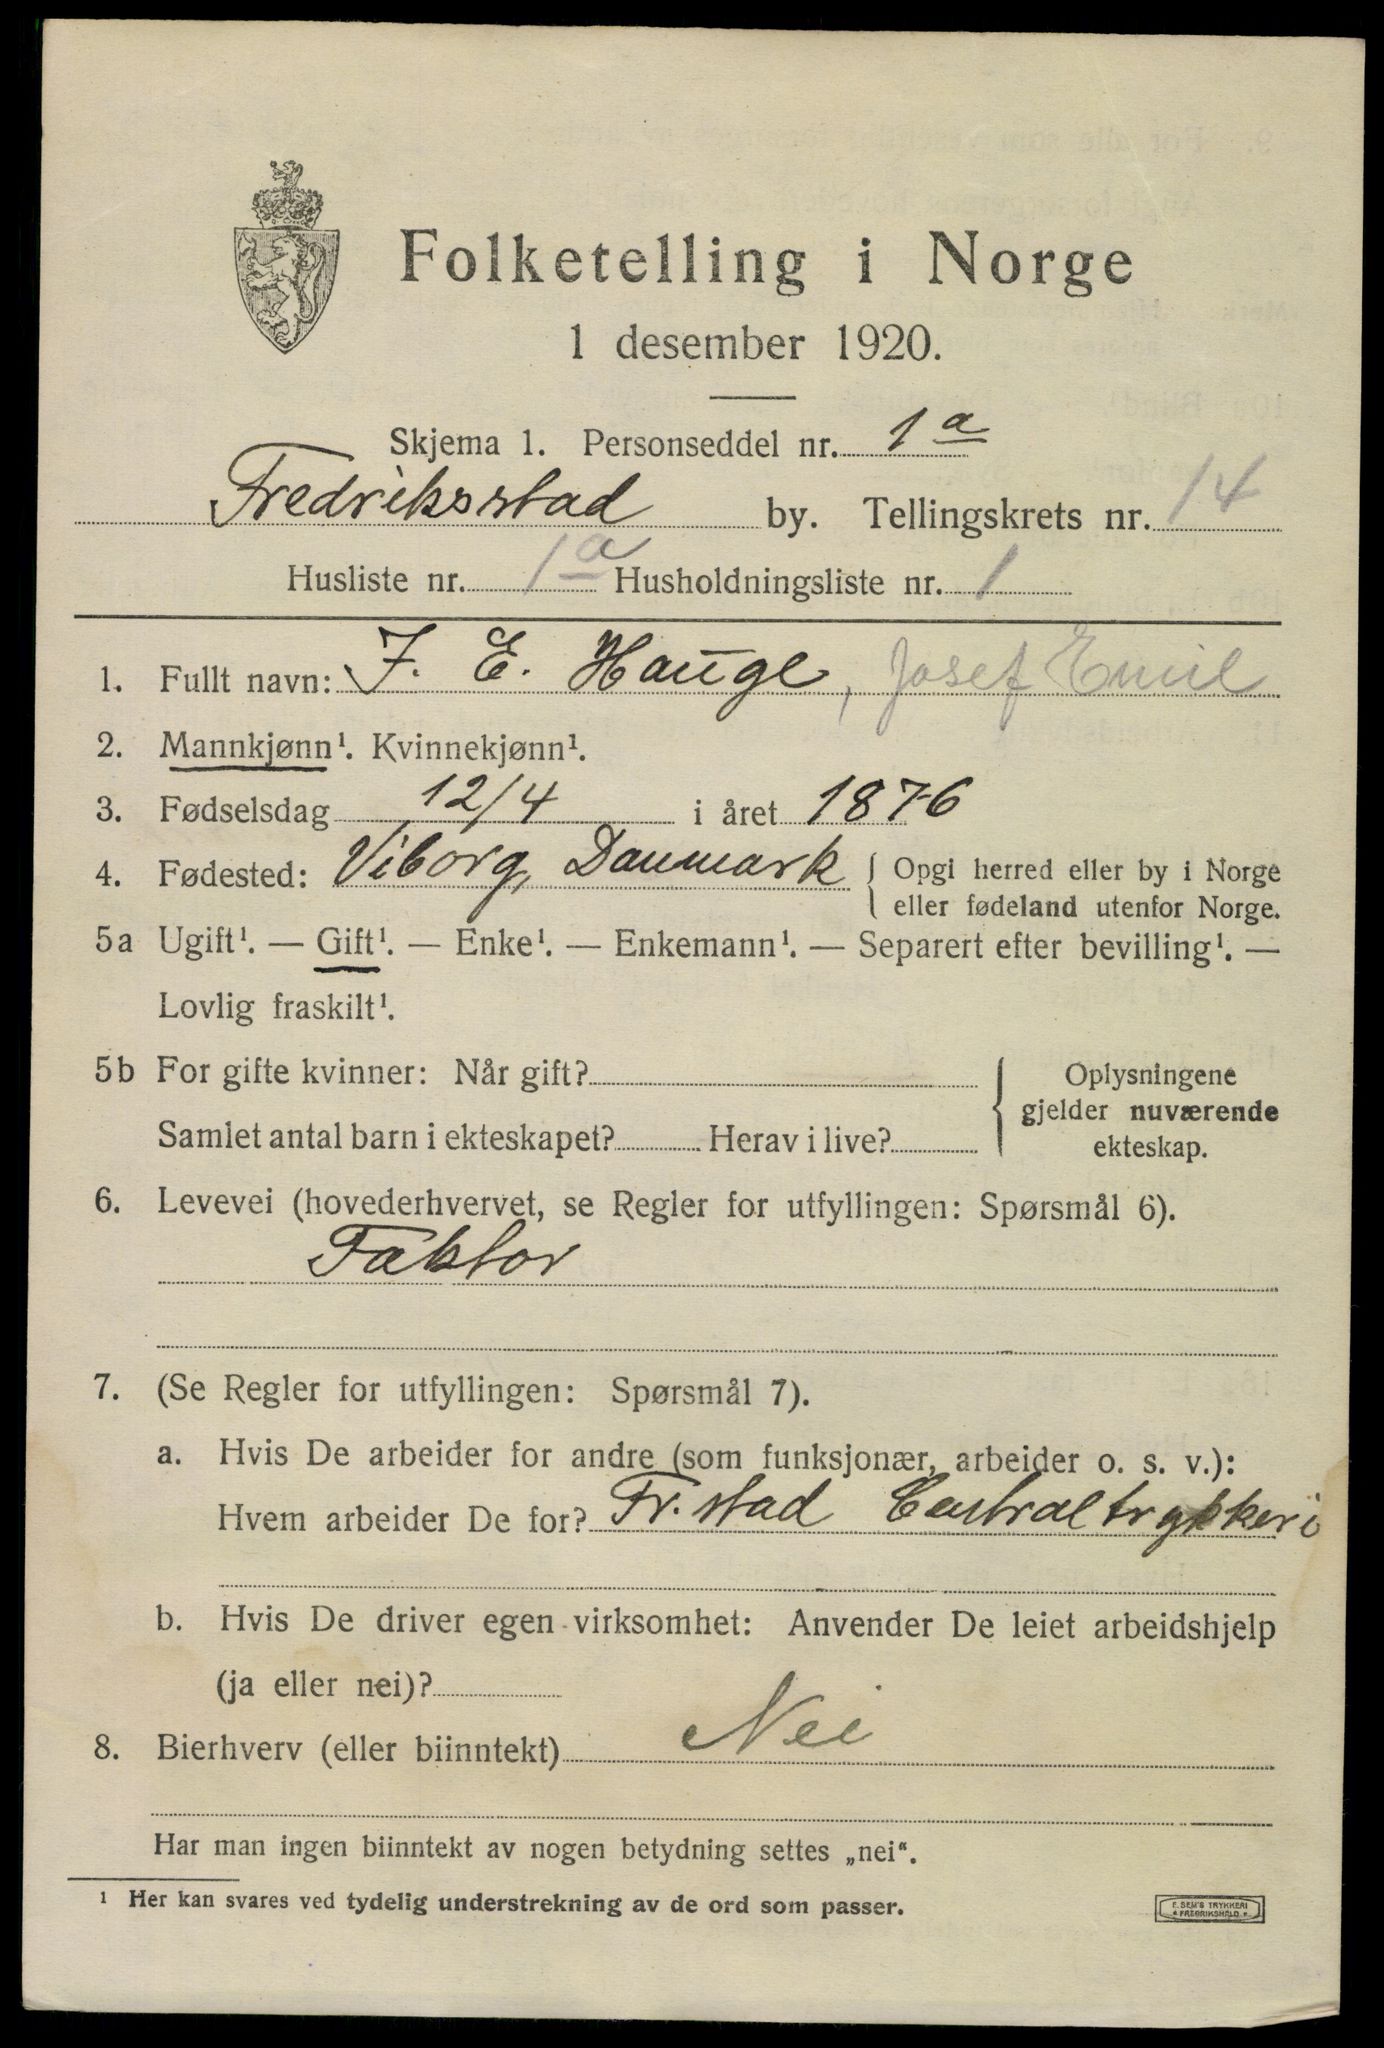 Folketelling i Norge
1 desember 1920.
Skjema 1. Personseddel nr. 1a
Fredriksstad by. Tellingskrets nr. 14
Husliste nr. 1a Husholdningsliste nr. 1
1. Fullt navn: J. E. Hauge, Josef Emil
2. Mannkjønn¹. Kvinnekjønn¹.
3. Fødselsdag 12/4 i året 1876
4. Fødested: Viborg, Danmark { Opgi herred eller by i Norge
eller fødeland utenfor Norge.
5a Ugift¹. — Gift¹. — Enke¹. — Enkemann¹. — Separert efter bevilling¹. —
Lovlig fraskilt¹.
5b For gifte kvinner: Når gift? { Oplysningene
gjelder nuværende
Samlet antal barn i ekteskapet? Herav i live? ekteskap.
6. Levevei (hovederhvervet, se Regler for utfyllingen: Spørsmål 6).
Faktor
7. (Se Regler for utfyllingen: Spørsmål 7).
a. Hvis De arbeider for andre (som funksjonær, arbeider o. s. v.):
Hvem arbeider De for? Fr.stad Centraltrykkeri
b. Hvis De driver egen virksomhet: Anvender De leiet arbeidshjelp
(ja eller nei)?
8. Bierhverv (eller biinntekt) Nei
Har man ingen biinntekt av nogen betydning settes „nei“.
¹ Her kan svares ved tydelig understrekning av de ord som passer.
E. SEM'S TRYKKERI
FREDRIKSHALD